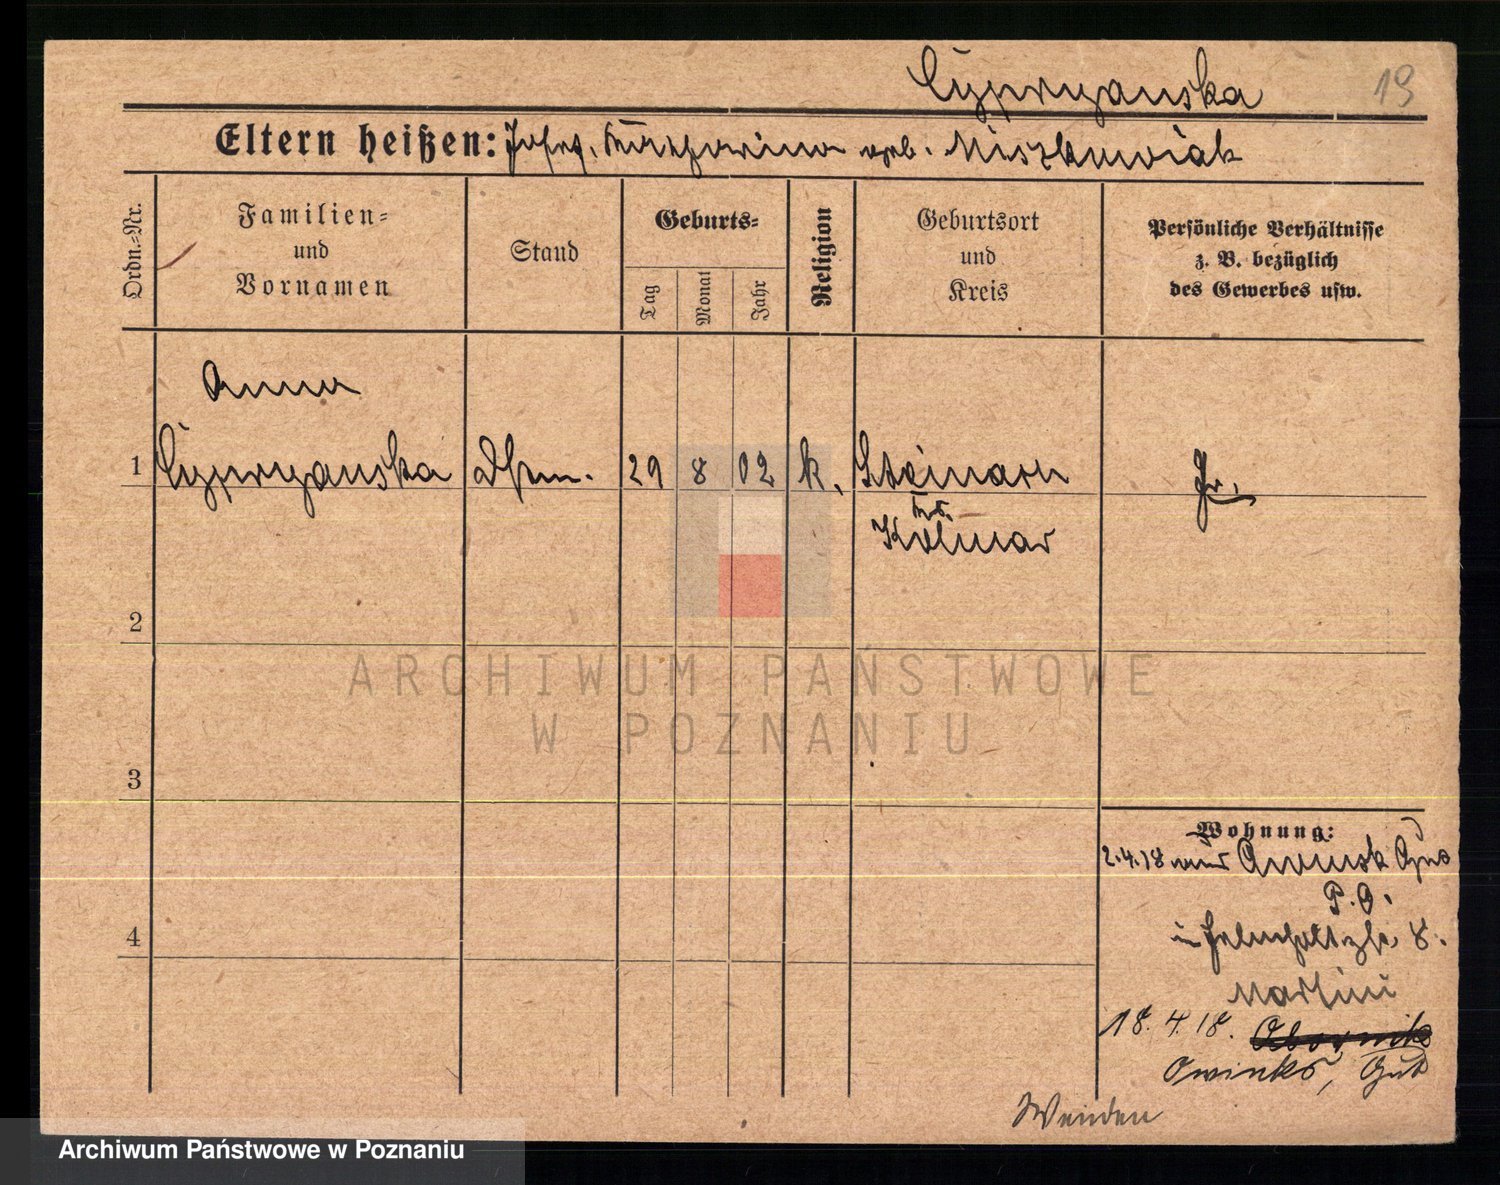 Cyprryanska 19
Eltern heißen: Josef, Katharina geb. Miszkowiak
Ordn.=Nr.
Familien=
und
Vornamen
Stand
Geburts=
Tag
Monat
Jahr
Religion
Geburtsort
und
Kreis
Persönliche Verhältnisse
z. B. bezüglich
des Gewerbes usw.
Anna
1 Cyprryanska Dstm. 29 8 02 k. Steinach
Krs.
Kolmar
Fr.
2
3
4
Wohnung:
2.4.18 aus
P. O.
in 8.
Martini
18.4.18.
Owinks, Gut
Wenden
ARCHIWUM PAŃSTWOWE
W POZNANIU
Archiwum Państwowe w Poznaniu